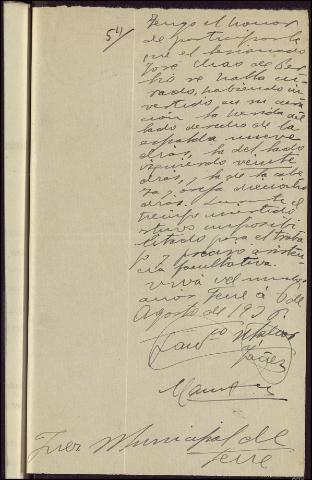 54
Tengo el honor
de participarle
que el lesionado
José Chao de Ber
se halla cu-
rado, habiendo in-
vertido en su cura
ción la herida del
lado derecho de la
espalda nueve
días, la del lado
izquierdo veinte
días, y la de la cabe
za y oreja dieciocho
días. Durante el
tiempo invertido
estuvo imposibi
litado para el traba
jo y precisó asisten
cia facultativa.
Viva Vd muchos
años Fene á 6 de
Agosto de 19
Yáñez
Juez Municipal de
Fene